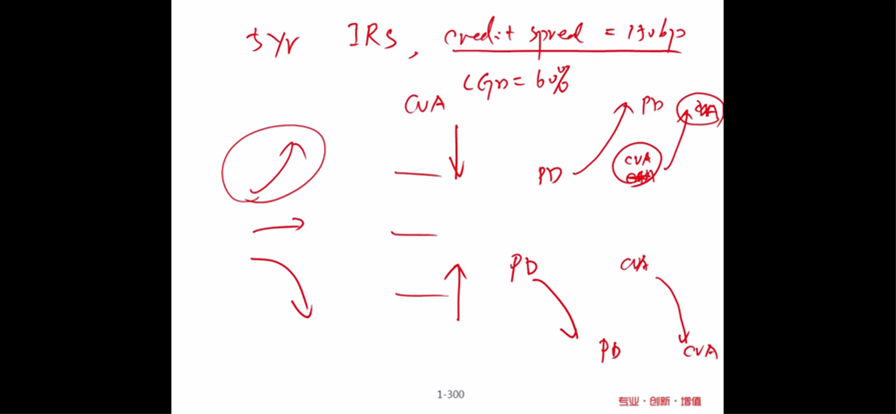 5 Yr IRS, credit spread = 150bp
LGD = 60%
CVA
PD CVA
PD CVA
PD CVA
PD CVA
1-300
专业·创新·增值